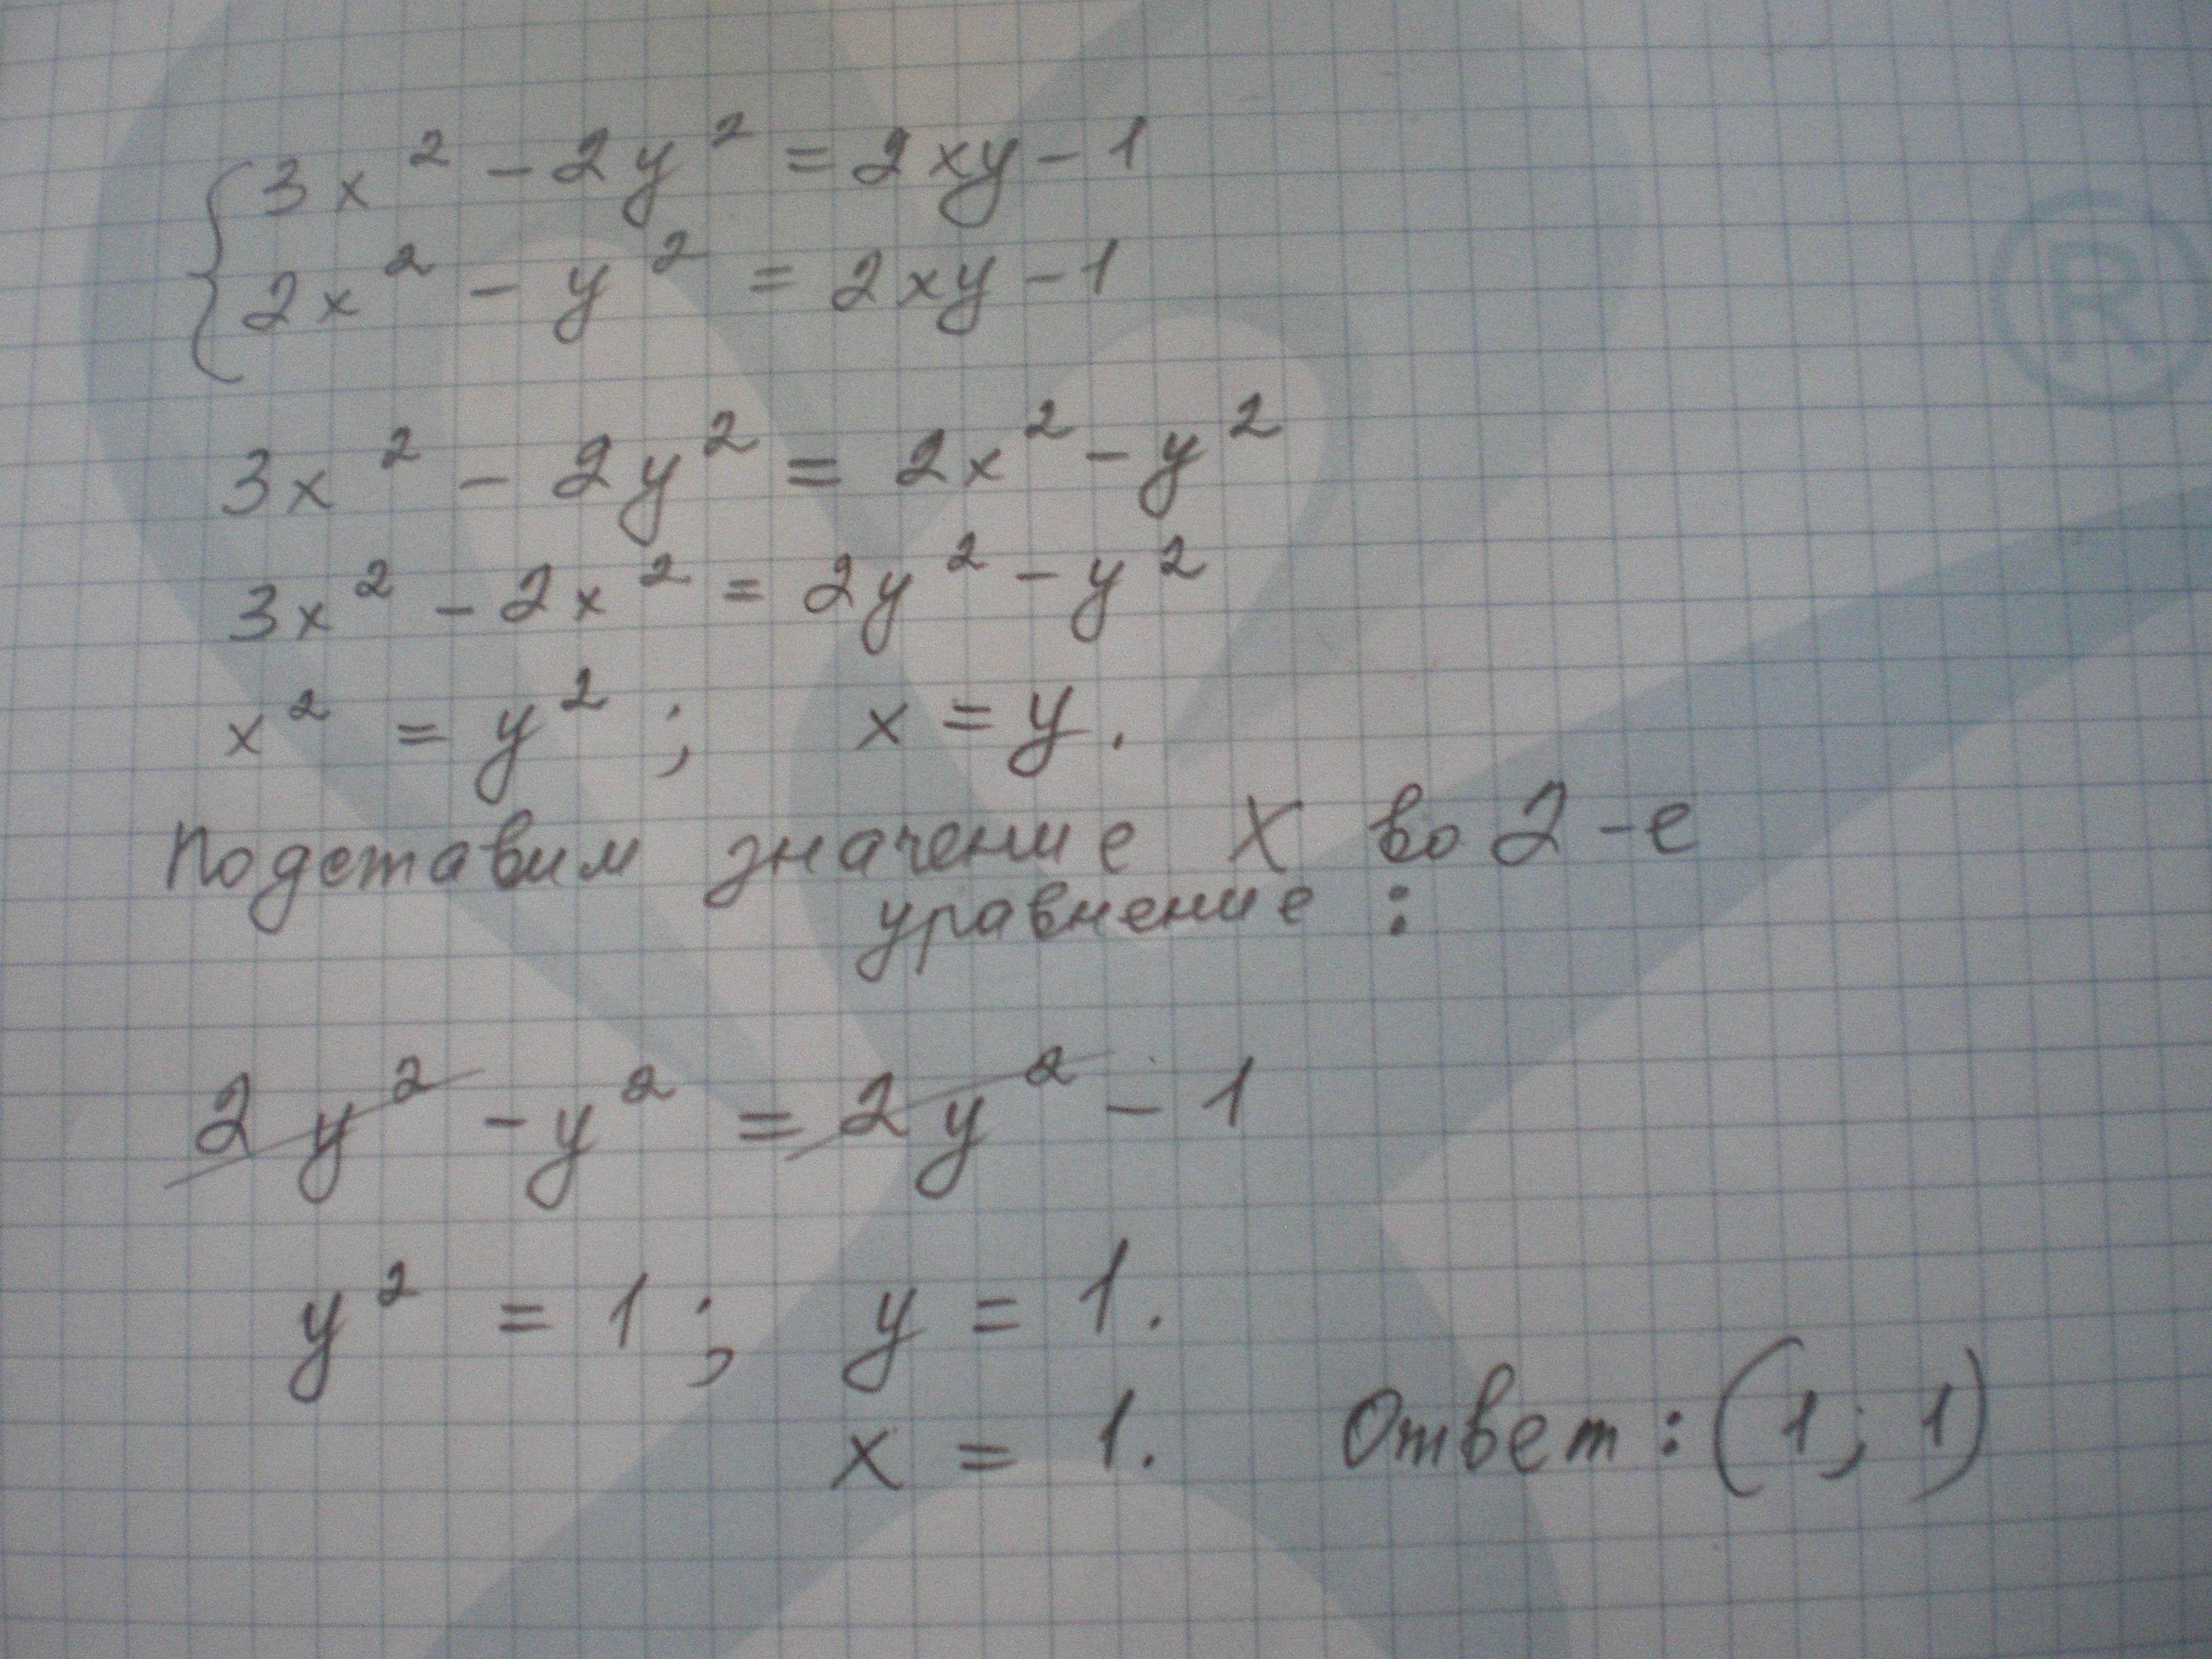 3x² - 2y² = 2xy - 1
2x² - y² = 2xy - 1
3x² - 2y² = 2x² - y²
3x² - 2x² = 2y² - y²
x² = y² ; x = y.
Подставим значение X во 2-е
уравнение :
2y² - y² = 2y² - 1
y² = 1 ; y = 1.
x = 1. Ответ : (1 ; 1)
®